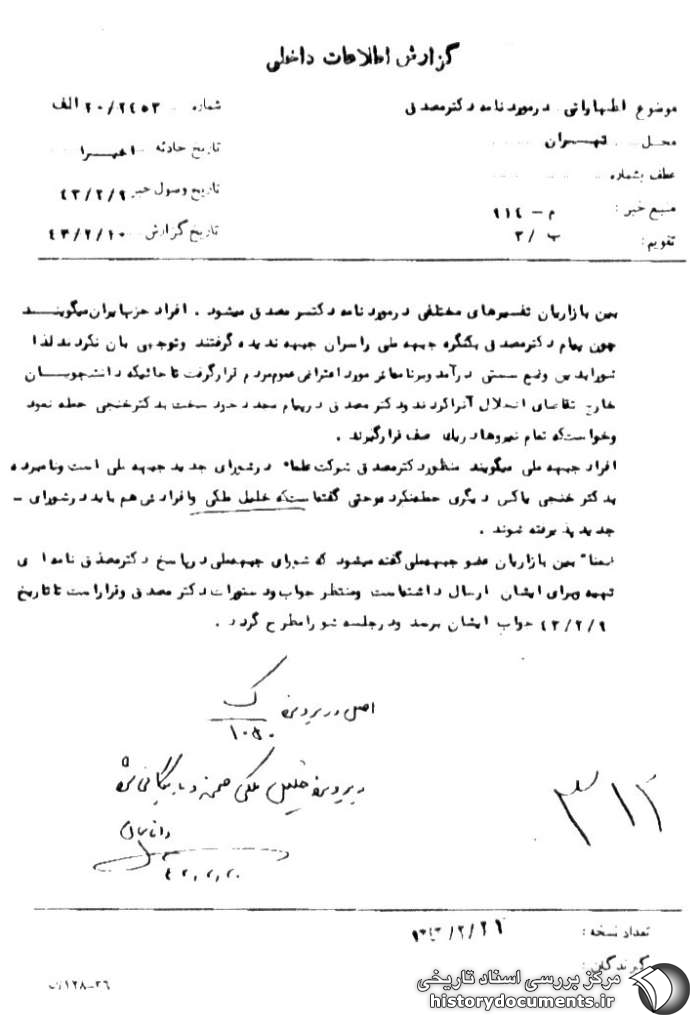 گزارش اطلاعات داخلی
موضوع اظهاراتی درمورد نامه دکتر مصدق
شماره ۲۰/۲۴۵۳ الف
محل تهران
تاریخ حادثه اخیرا
عطف بشماره
تاریخ وصول خبر ۴۳/۲/۹
منبع خبر : م - ۹۱۴
تاریخ گزارش ۴۳/۲/۱۰
تقویم : ب / ۳
بین بازاریان تفسیرهای مختلفی درمورد نامه دکتر مصدق میشود . افراد حزب ایران میگویند
چون پیام دکتر مصدق بکنگره جبهه ملی را سران جبهه ندیده گرفتند و توجهی بآن نکردند لذا
شورا بدین وضع سستی درآمد و برنامه‌اش مورد اعتراض عموم مردم قرار گرفت تا جائیکه دانشجویان
خارج تقاضای انحلال آنرا کردند و دکتر مصدق در پیام مجدد خود سخت بدکتر خنجی حمله نمود
و خواست که تمام نیروها در یک صف قرار گیرند .
افراد جبهه ملی میگویند منظور دکتر مصدق شرکت علما در شورای جدید جبهه ملی است و نامبرده
بدکتر خنجی یا کس دیگری حمله نکرده و حتی گفته است که خلیل ملکی و افرادش هم باید در شورای -
جدید پذیرفته شوند .
ضمنا" بین بازاریان عضو جبهه ملی گفته میشود که شورای جبهه ملی در پاسخ دکتر مصدق نامه ای
تهیه و برای ایشان ارسال داشته است و منتظر جواب و دستورات دکتر مصدق و قرار است تا تاریخ
۴۳/۲/۹ جواب ایشان برسد و در جلسه شورا مطرح گردد .
اصل در پرونده ک
۱۰۵۰
در پرونده خلیل ملکی ضمیمه و بایگانی شود
۳۱۲
تعداد نسخه :
گیرندگان :
۳۶-۱۲۸
مرکز بررسی اسناد تاریخی
historydocuments.ir